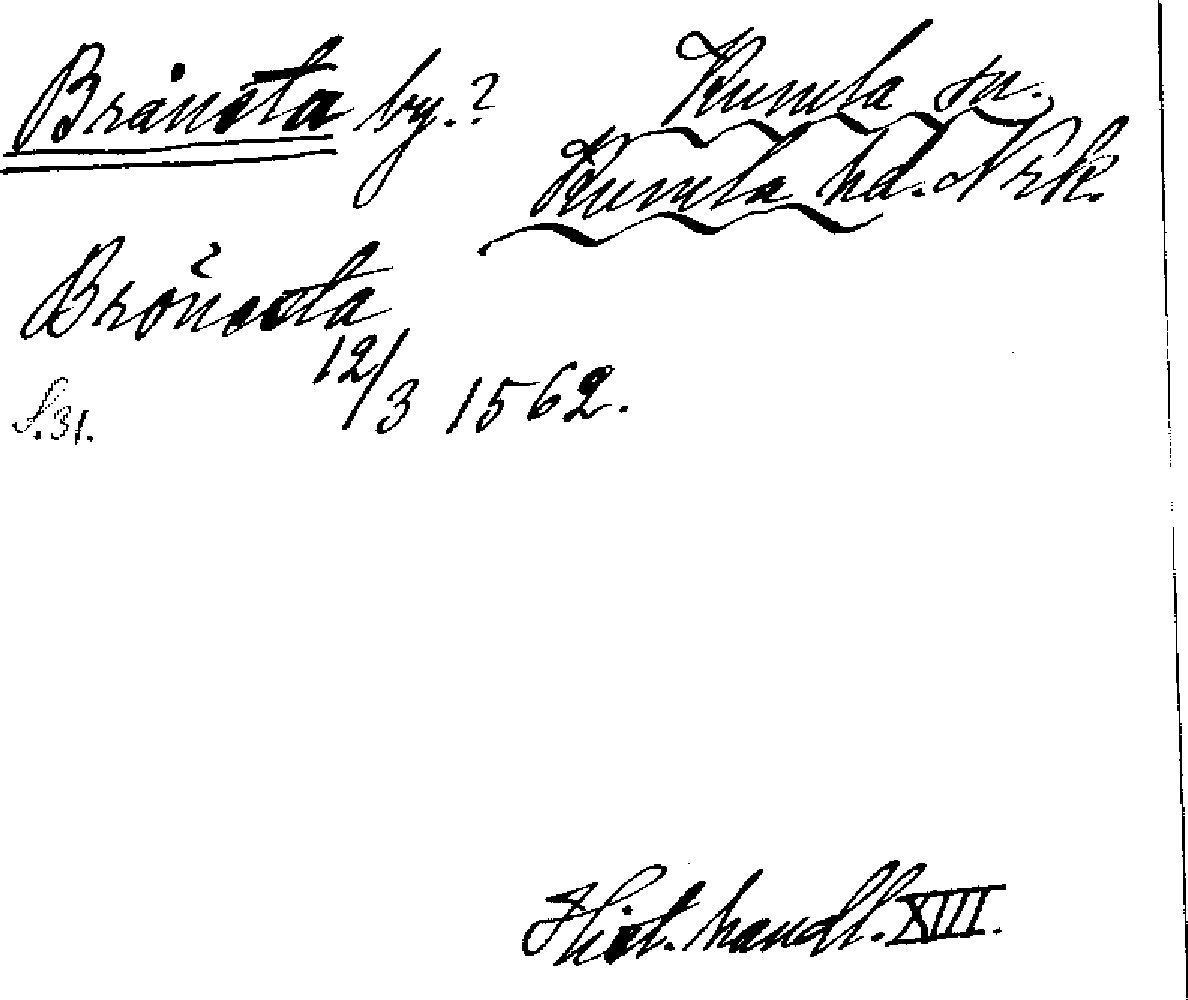 Brånsta by.? Kumla sn.
Kumla hd. Nrk.
Brönsta
12/3 1562.
S. 31.
Hist. handl. XIII.